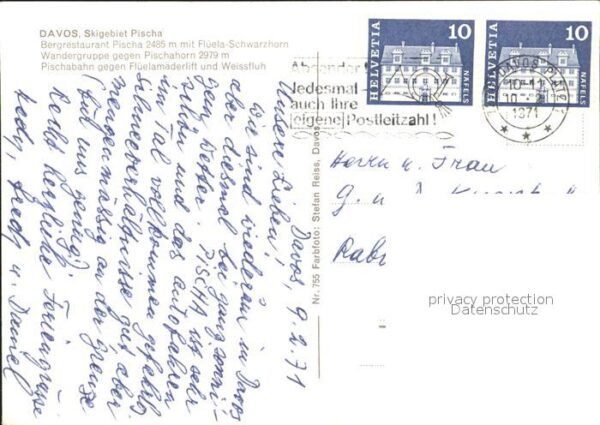 DAVOS, Skigebiet Pischa
Bergrestaurant Pischa 2485 m mit Flüela-Schwarzhorn
Wandergruppe gegen Pischahorn 2979 m
Pischabahn gegen Flüelamäderlift und Weissfluh
HELVETIA 10 NÄFELS
HELVETIA 10 NÄFELS
DAVOS PLATZ
10.-2.
1971
Jedesmal
auch Ihre
eigene Postleitzahl!
Nr. 755 Farbfoto: Stefan Reiss, Davos
Davos, 9.2.71
Lieben!
Wir sind wiederum in Davos
aber diesmal bei ganz sonni-
gem Wetter. PISCHA ist sehr
schön und das autofahren
im Tal vollkommen gefahrlos
Schneeverhältnisse gut aber
mengenmässig an der Grenze
uns genügts
Recht herzliche Feriengrüsse
Hedy, Fredy u. Daniel
Herrn u. Frau
G. u.
privacy protection
Datenschutz